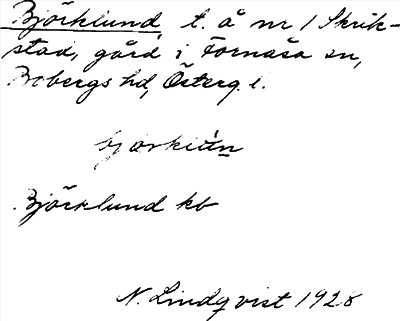 Björklund, t. å nr 1 Skrik-
stad, gård i Fornåsa sn,
Bobergs hd, Österg. l.
Björklund kb
N. Lindqvist 1928